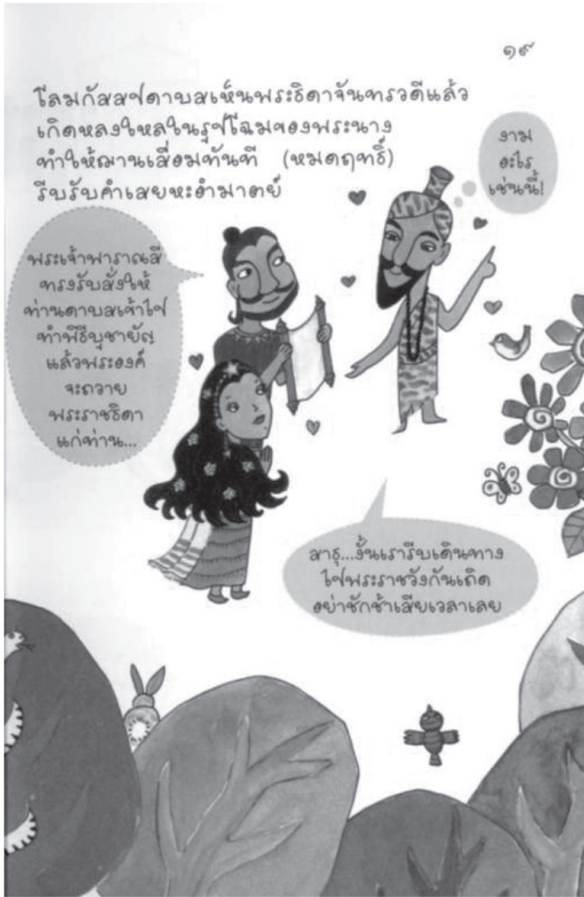 ๑๙
โลมกัสสปดาบสเห็นพระธิดาจันทรวดีแล้ว
เกิดหลงใหลในรูปโฉมของพระนาง
ทำให้ฌานเสื่อมทันที (หมดฤทธิ์)
รีบรับคำเสยหะอำมาตย์
งาม
อะไร
เช่นนี้!
พระเจ้าพาราณสี
ทรงรับสั่งให้
ท่านดาบสเข้าไป
ทำพิธีบูชายัญ
แล้วพระองค์
จะถวาย
พระราชธิดา
แก่ท่าน...
สาธุ...งั้นเรารีบเดินทาง
ไปพระราชวังกันเถิด
อย่าชักช้าเสียเวลาเลย